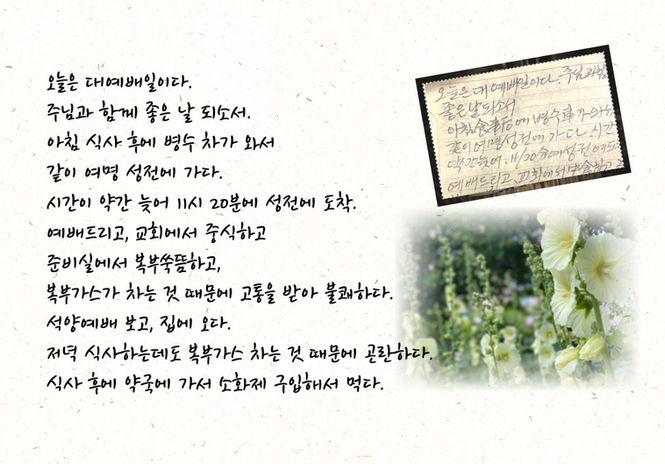 오늘은 대예배일이다.
주님과 함께 좋은 날 되소서.
아침 식사 후에 병수 차가 와서
같이 여명 성전에 가다.
시간이 약간 늦어 11시 20분에 성전에 도착.
예배드리고, 교회에서 중식하고
준비실에서 복부쑥뜸하고,
복부가스가 차는 것 때문에 고통을 받아 불쾌하다.
석양예배 보고, 집에 오다.
저녁 식사하는데도 복부가스 차는 것 때문에 곤란하다.
식사 후에 약국에 가서 소화제 구입해서 먹다.
오늘은 대예배일이다. 주님과
좋은날되소서
아침 食事后에 병수車가
같이 여명성전에 가다 시간
약간늦어 11/20分에성전에
예배드리고 교회에서